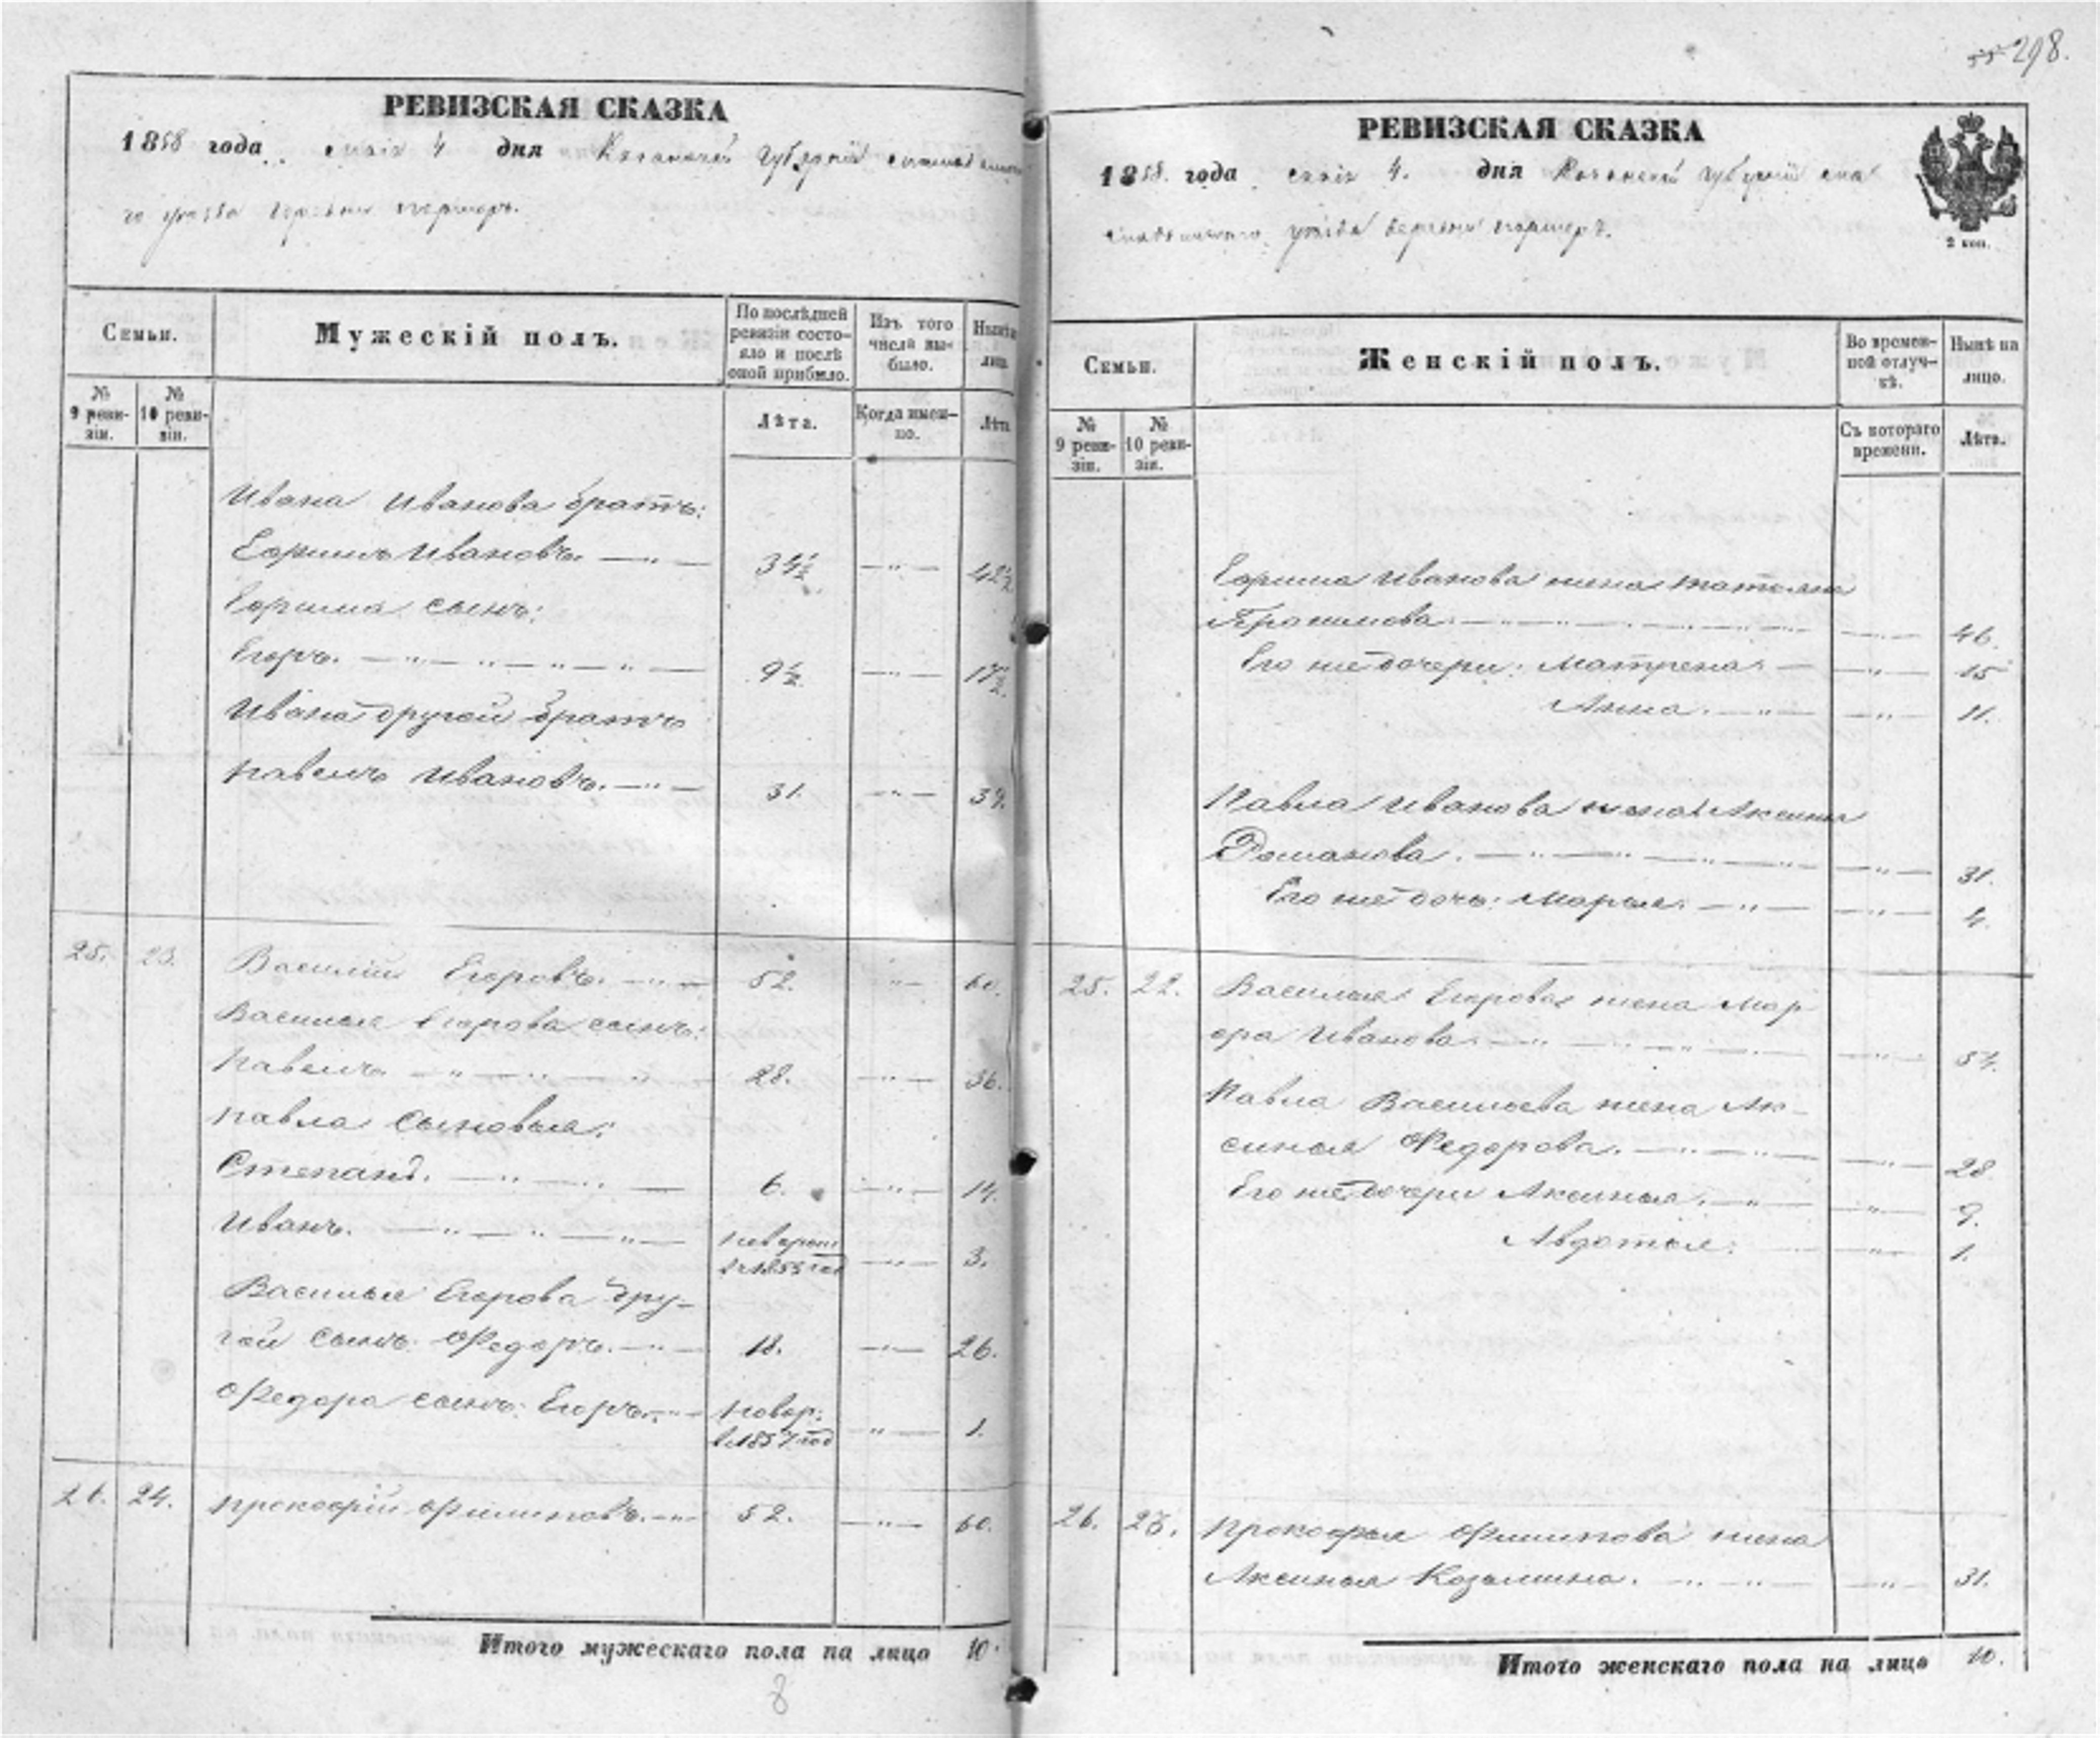 298.
РЕВИЗСКАЯ СКАЗКА
1858 года маія 4 дня Казанской Губерніи
го уезда деревни
Семьи.
Мужескій полъ.
По послѣдней ревизіи состояло и послѣ оной прибыло.
Изъ того числа выбыло.
Нынѣ лиц.
№ 9 ревизіи.
№ 10 ревизіи.
Лѣта.
Когда именно.
Лѣта
Ивана Иванова братъ:
Ефимъ Ивановъ. 34½ 42½
Ефима сынъ:
Егоръ. 9½ 17½
Ивана другой братъ
павелъ Ивановъ. 31. 39.
25. 23. Василій Егоровъ. 52. 60.
Василья Егорова сынъ:
павелъ 28. 36.
павла сыновья:
Степанъ. 6. 14.
Иванъ. новорож 3.
Василья Егорова дру-
гой сынъ Федоръ. 18. 26.
Федора сынъ: Егоръ. новор: 1.
в 1857 год
26. 24. прокофій Филиповъ. 52. 60.
Итого мужескаго пола на лицо 10.
8
РЕВИЗСКАЯ СКАЗКА
1858. года маія 4. дня Казанской Губерніи
уезда деревни
2 коп.
Семьи.
Женскій полъ.
Во временной отлучкѣ.
Нынѣ на лицо.
№ 9 ревизіи.
№ 10 ревизіи.
Съ котораго времени.
Лѣта.
Ефима Иванова жена татьяна
46.
Его же дочери: Матрена 15
Анна. 11.
Павла Иванова жена Аксинья
Романова. 31.
Его же дочь: Марья. 4.
25. 22. Василья Егорова жена Мар-
фа Иванова 54.
Павла Васильева жена Ак-
синья Федорова. 28
Его же дочери Аксинья. 9.
Авдотья. 1.
26. 23. Прокофья Филипова жена
Аксинья Козьмина. 31.
Итого женскаго пола на лицо 10.